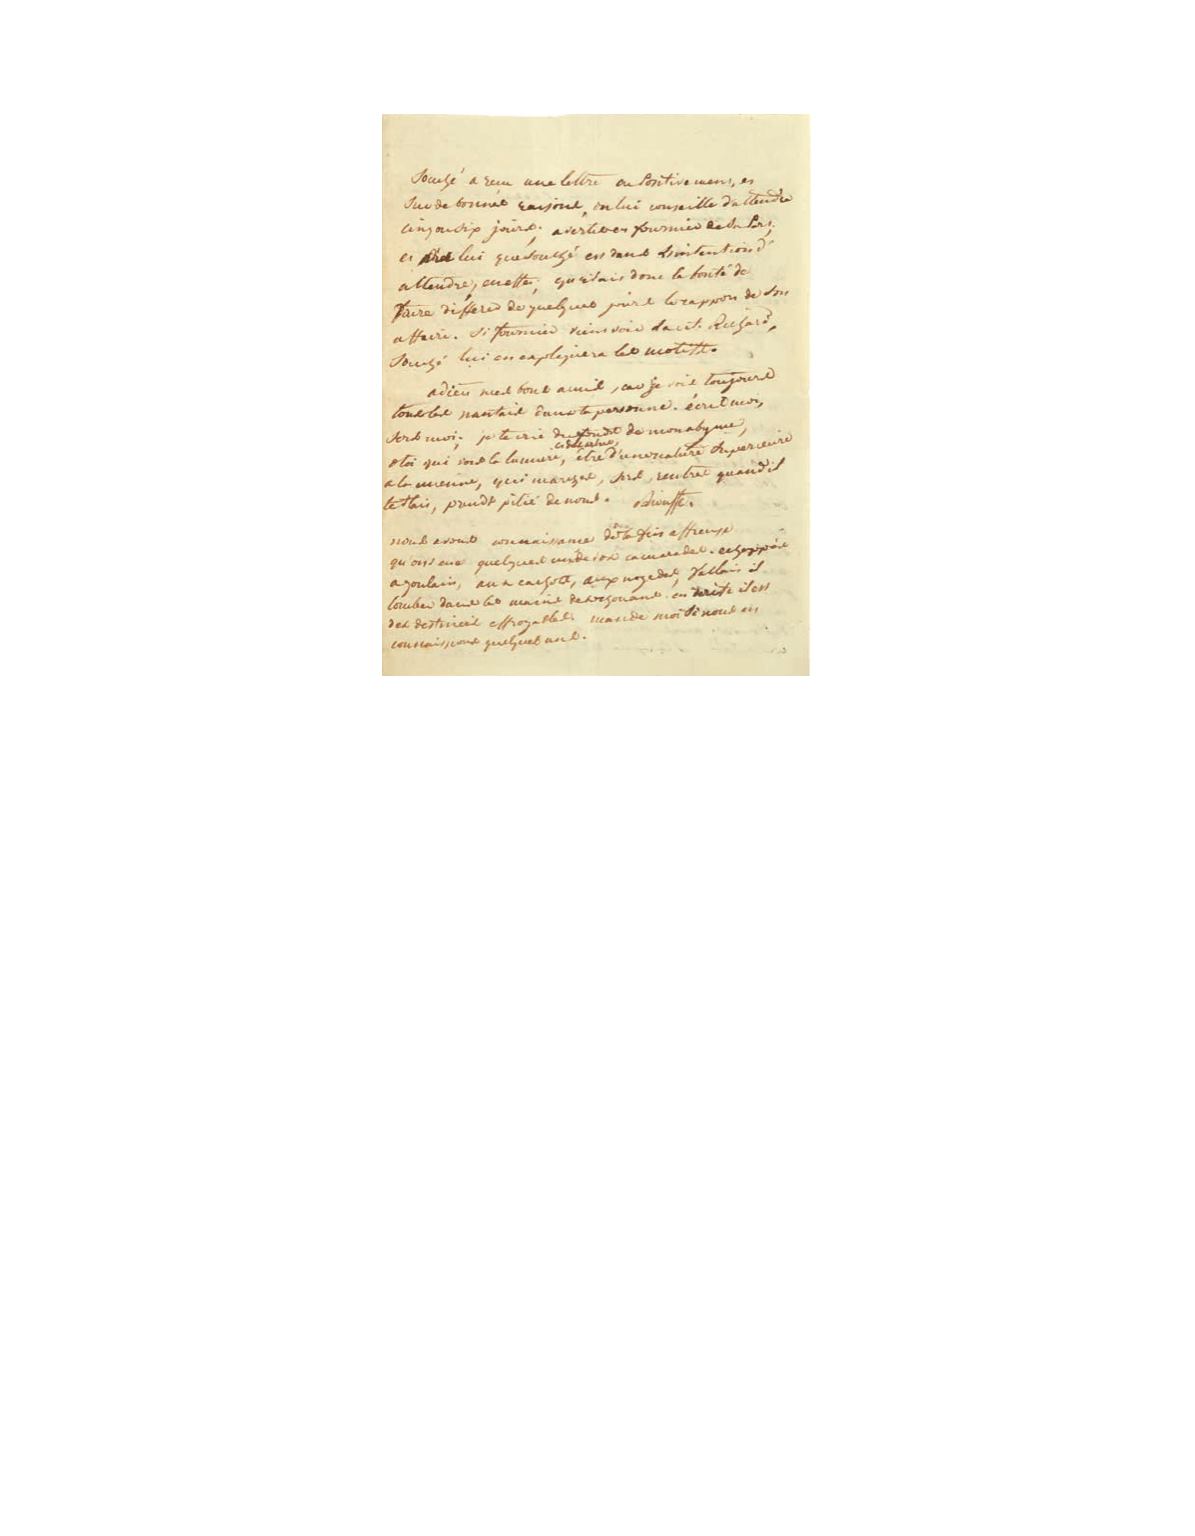 Souzé a reçu une lettre ou positivement, et
sur de bonnes raisons, on lui conseille d'attendre
cinq ou six jours; avertis en fournier de sa part,
et lui que Souzé est dans l'intention d'
attendre, en effet, qu'il ait donc la bonté de
faire differer de quelques jours le rapport de son
affaire. Si fournier vient voir la cit. Richard,
Souzé lui en expliquera les motifs.
adieu mes bons amis, car je vois toujours
tous les nantais dans ta personne. écris moi,
sers moi; je te crie du fonds de mon abyme,
o toi qui vois la lumiere, être d'une nature superieure
a la mienne, qui marches, sors, rentres quand il
te plais, prends pitié de nous. Riouffe.
nous avons connaissance de la fin affreuse
qu'ont eue quelques uns de vos camarades. echappés
a goulain, aux cachots, aux noyades, fallait il
tomber dans les mains des chouans. en vérité il est
des destinées effroyables. mande moi si nous en
connaissions quelques uns.